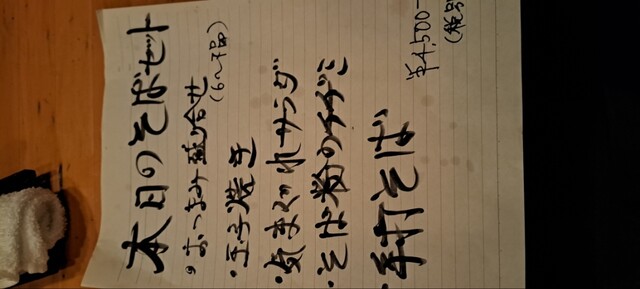 本日のそばセット
・おつまみ盛り合せ
(6~7品)
・玉子焼き
・気まぐれサラダ
・そば粉のチヂミ
・手打そば
¥4,500-
(税別)